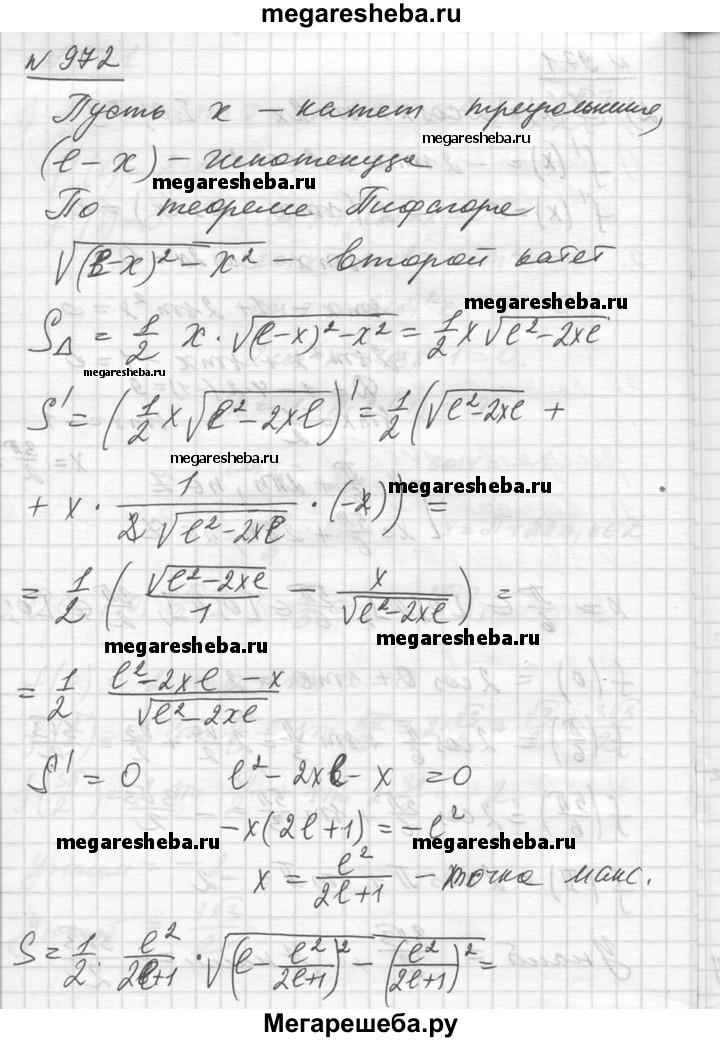 megaresheba.ru
N 972
Пусть x – катет треугольника,
megaresheba.ru
(l – x) – гипотенуза
megaresheba.ru
По теореме Пифагора
√((l-x)² – x²) – второй катет
megaresheba.ru
S△ = 1/2 x · √((l-x)² - x²) = 1/2 x √(l² - 2xl)
megaresheba.ru
S' = (1/2 x √(l² - 2xl))' = 1/2 (√(l² - 2xl) +
megaresheba.ru
megaresheba.ru
+ x · 1/(2√(l² - 2xl)) · (-2)) =
= 1/2 (√(l² - 2xl)/1 - x/√(l² - 2xl)) =
megaresheba.ru
megaresheba.ru
= 1/2 (l² - 2xl - x)/√(l² - 2xl)
S' = 0 l² - 2xl - x = 0
-x(2l+1) = -l²
megaresheba.ru
megaresheba.ru
x = l²/(2l+1) – точка макс.
S = 1/2 · l²/(2l+1) · √((l - l²/(2l+1))² - (l²/(2l+1))²) =
Мегарешеба.ру